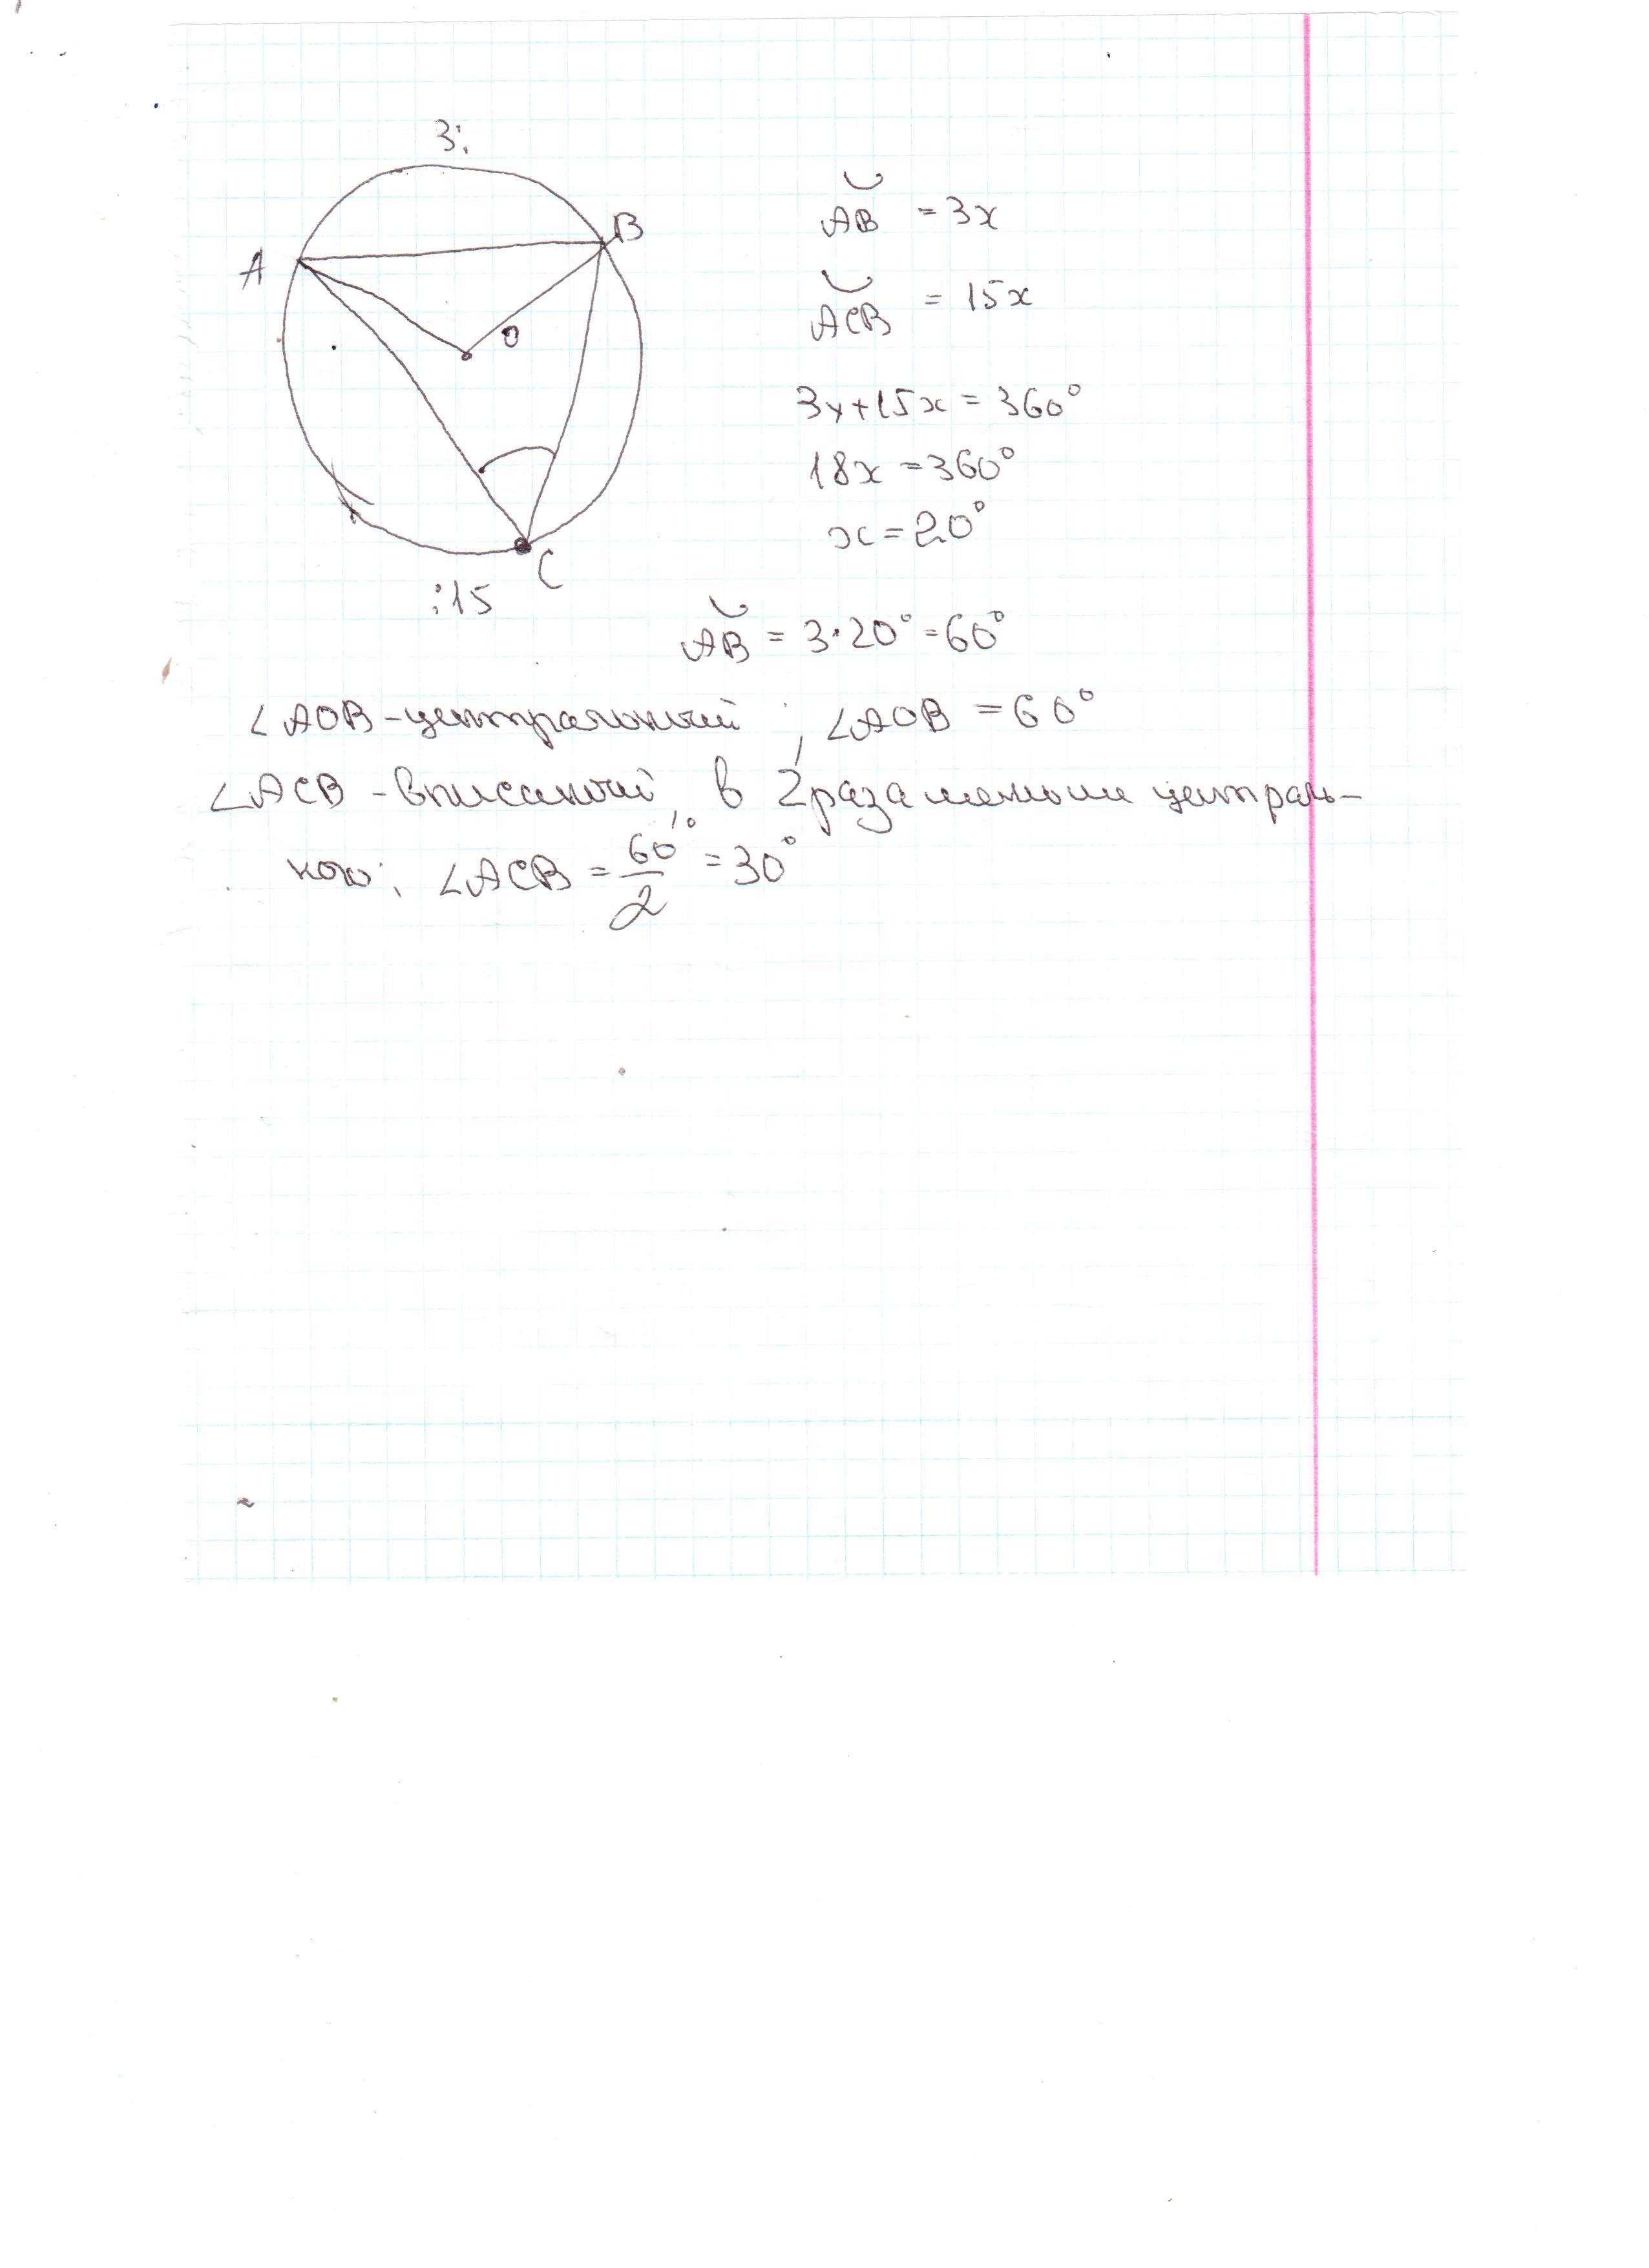 3:
A
B
O
C
:15
◡
AB = 3x
◡
ACB = 15x
3x+15x = 360°
18x = 360°
x = 20°
◡
AB = 3·20° = 60°
∠AOB - центральный ; ∠AOB = 60°
∠ACB - вписаный, в 2 раза меньше централь-
ного; ∠ACB = 60°/2 = 30°